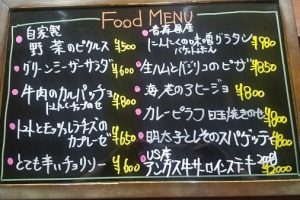 Food MENU
自家製
野菜のピクルス ¥500
グリーンシーザーサラダ ¥600
牛肉のカルパッチョ ¥800
トマトとモッツァレラチーズの
カプレーゼ ¥650
とても辛いチョリソー ¥600
青森県産
にんにくの味噌グラタン ¥780
生ハムとバジリコのピザ ¥850
海老のアヒージョ ¥800
カレーピラフ 目玉焼きのせ ¥800
明太子としそのスパゲッティ ¥800
US産
アンガス牛サーロインステーキ ¥2000